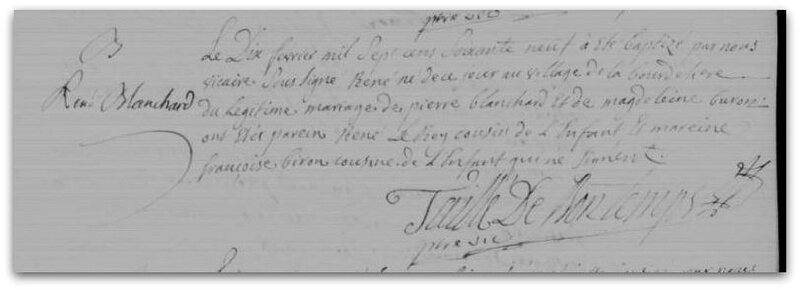 ptre vic
B
René Blanchard
Le Dix fevrier mil Sept cens Soixante neuf à Eté Baptizé par nous
vicaire Soussigné René né de ce jour au village de la bourdeliere
du Legitime mariage de pierre blanchard Et de magdeleine buron
ont Etés parein René Le Roy cousin de L'Enfant Et mareine
françoise biron cousine de L'Enfant qui ne Signent.
Taillé De Bontemps
ptre vic